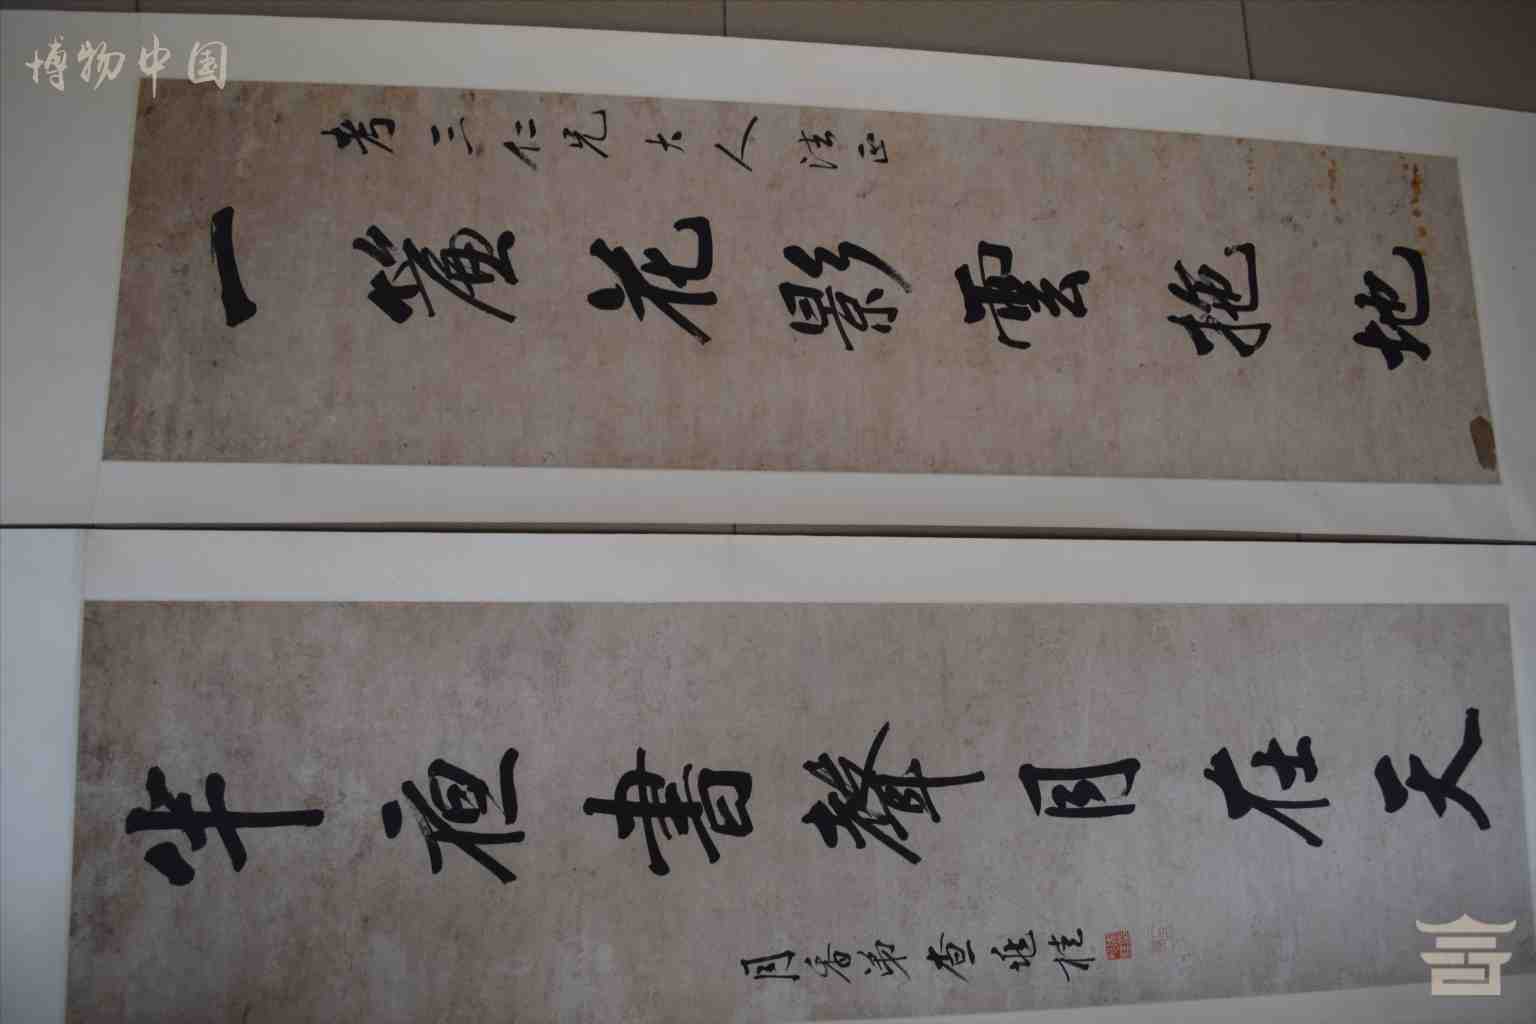 博物中国
三仁兄大人法正
一簾花影雲拖地
半夜書聲月在天
月香弟查桂